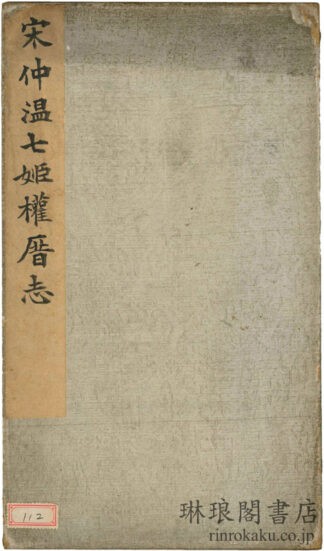 宋仲温七姬權厝志
112
琳琅閣書店
rinrokaku.co.jp